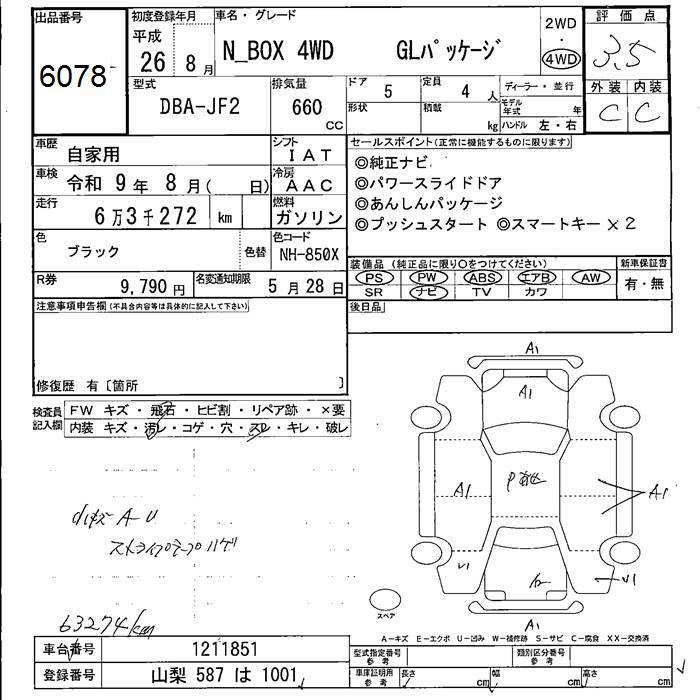 出品番号
6078
初度登録年月
平成
26 8月
車名・グレード
N_BOX 4WD GLパッケージ
2WD
・
4WD
評価点
3.5
型式
DBA-JF2
排気量
660
CC
ドア
5
定員
4 人
形状
積載
kg
ディーラー・並行
モデル
年式
年
ハンドル 左・右
外装 内装
C C
車歴
自家用
シフト
IAT
車検
令和 9年 8月( 日)
冷房
AAC
走行
6万3千272 km
燃料
ガソリン
色
ブラック
色替
色コード
NH-850X
R券
9,790円
名変通知期限
5月28日
セールスポイント(正常に機能するものに限ります)
◎純正ナビ
◎パワースライドドア
◎あんしんパッケージ
◎プッシュスタート ◎スマートキー×2
装備品 (純正品に限り○をつけてください)
PS PW ABS エアB AW
SR ナビ TV カワ
新車保証書
有・無
注意事項申告欄(不具合内容等は具体的に記入して下さい)
後日品
修復歴 有〔箇所 〕
検査員
記入欄
FW キズ・飛石・ヒビ割・リペア跡・×要
内装 キズ・汚レ・コゲ・穴・スレ・キレ・破レ
A-U
ストライプテープハゲ
63274km
A1
A1
A1
A1
A1
スペア
A-キズ E-エクボ U-凹み W-補修跡 S-サビ C-腐食 XX-交換済
車台番号
1211851
登録番号
山梨 587 は 1001
型式指定番号
参考
類別区分番号
参考
車庫証明用
参考
長さ cm 幅 cm 高さ cm